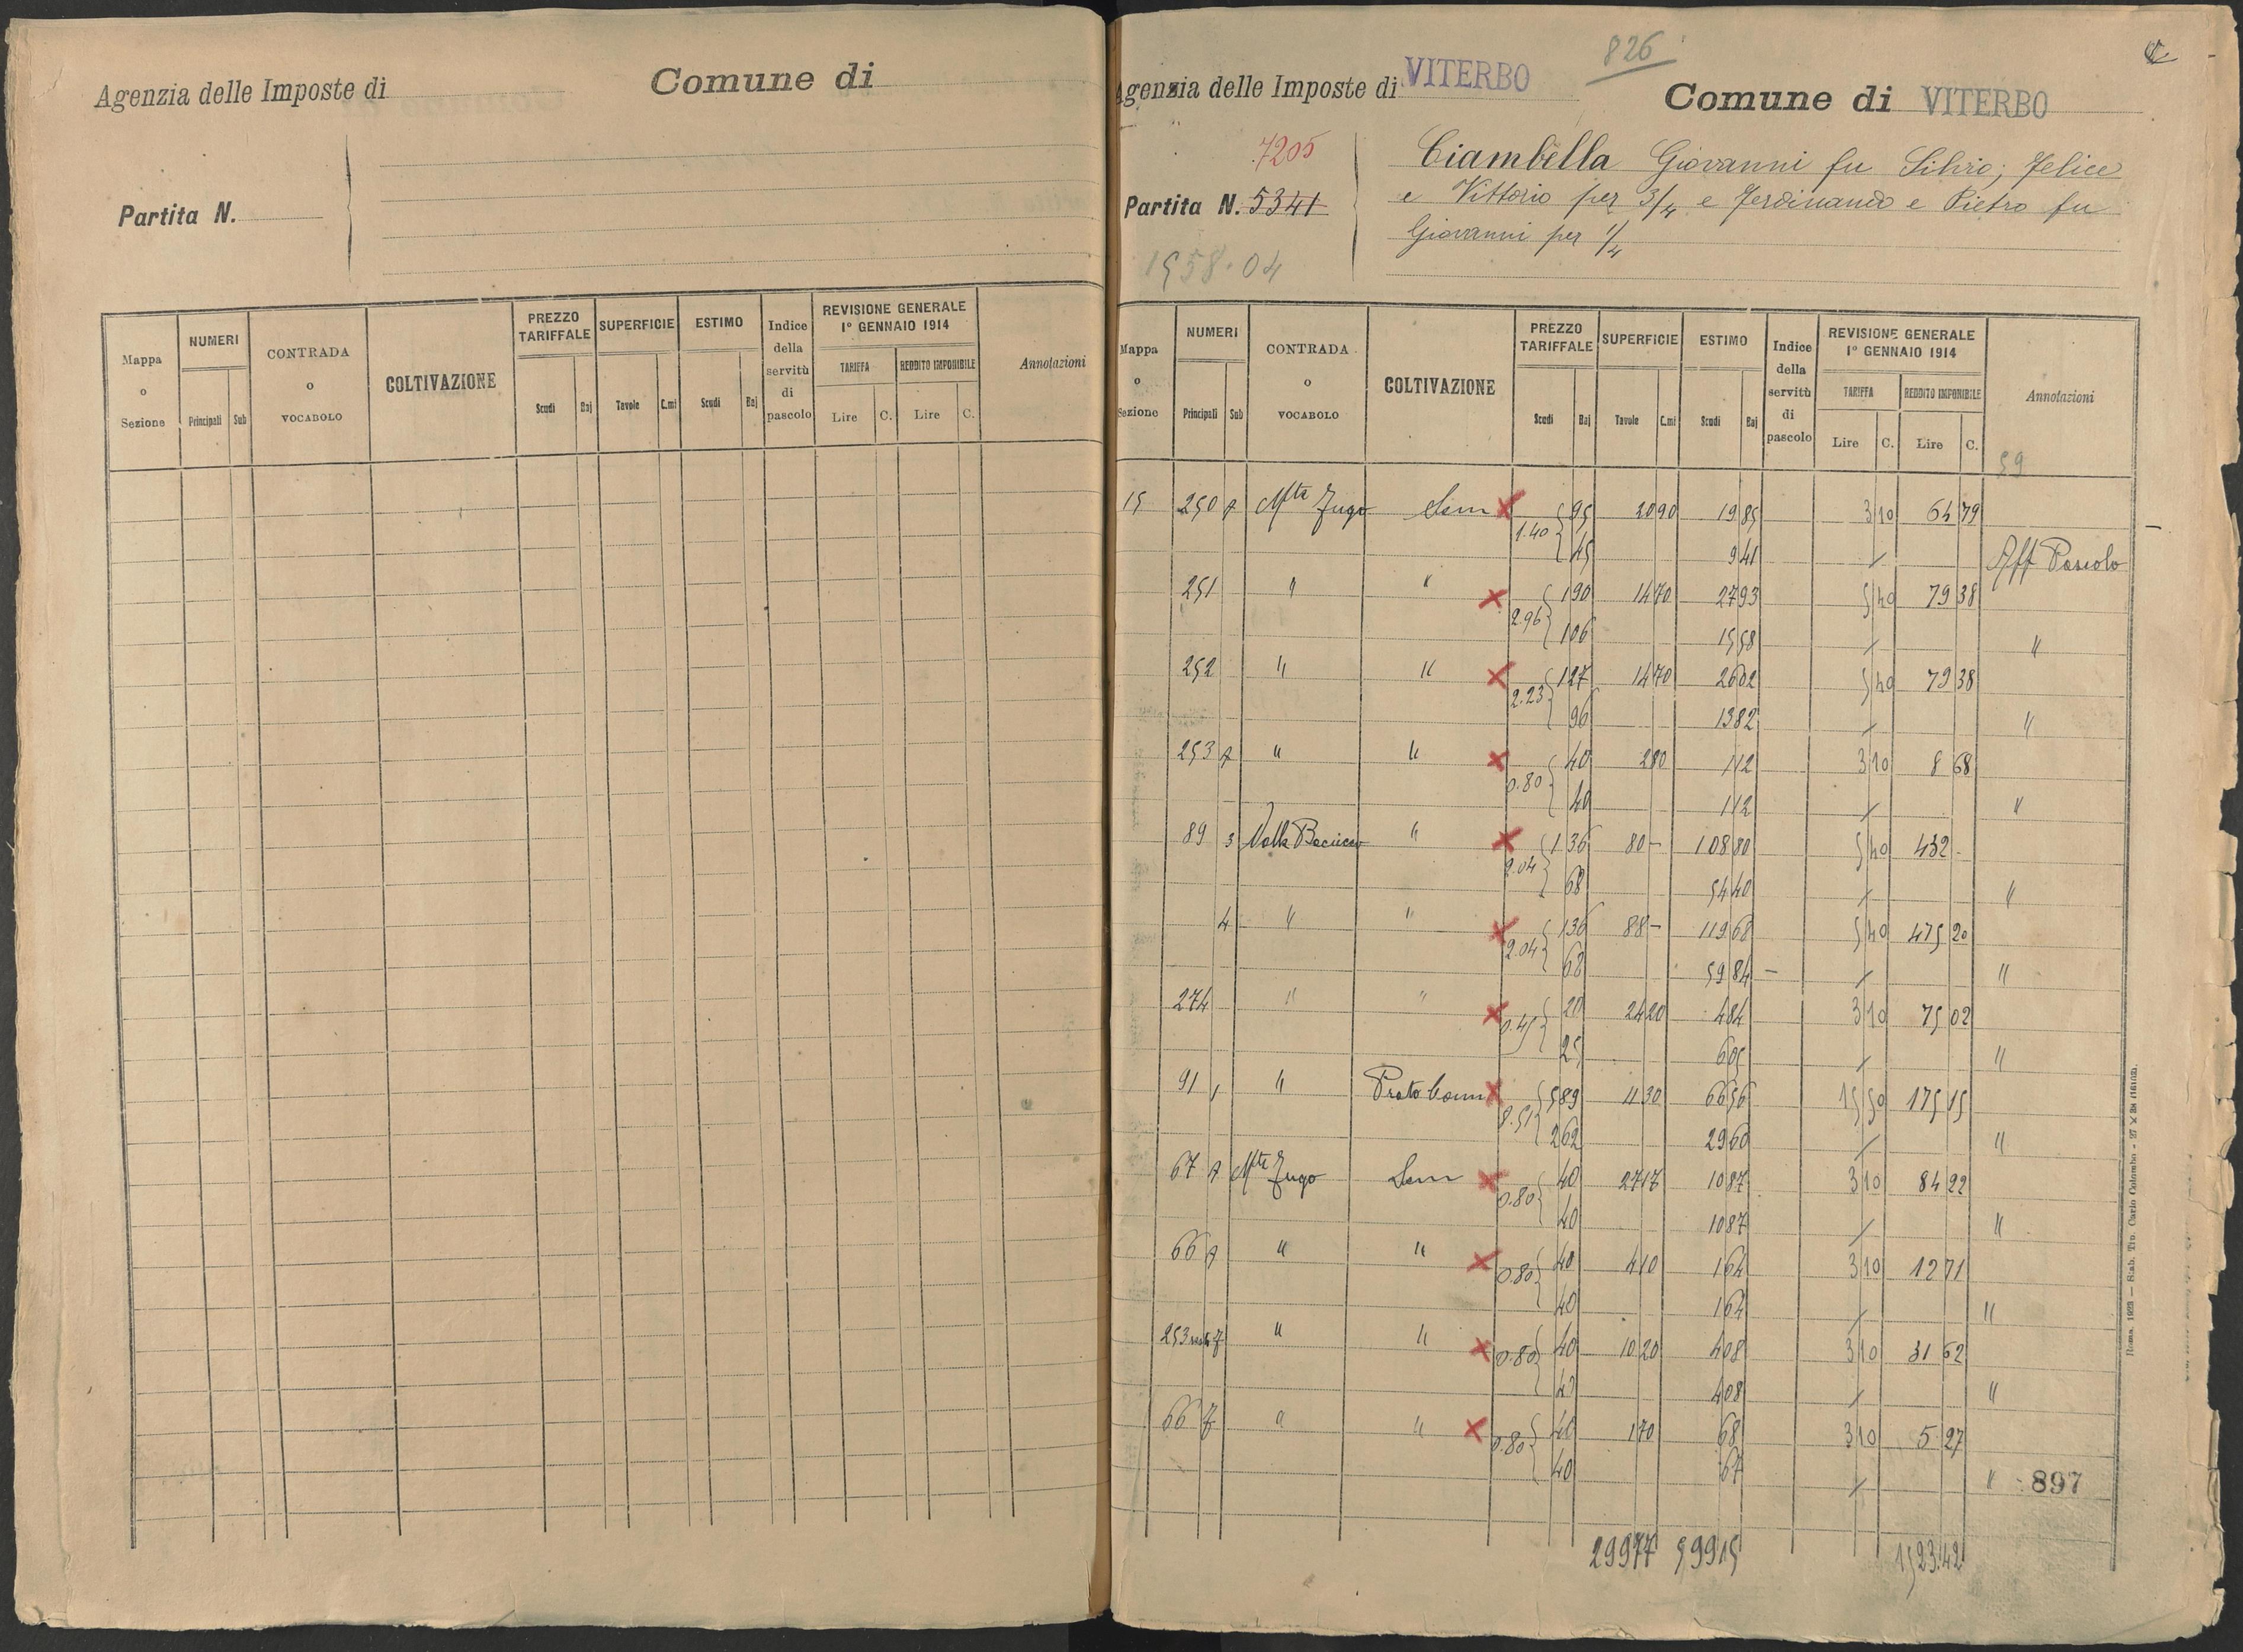 Agenzia delle Imposte di
Comune di
Partita N.
Mappa o Sezione
NUMERI
Principali Sub
CONTRADA o VOCABOLO
COLTIVAZIONE
PREZZO TARIFFALE
Scudi Baj
SUPERFICIE
Tavole C.mi
ESTIMO
Scudi Baj
Indice della servitù di pascolo
REVISIONE GENERALE
1° GENNAIO 1914
TARIFFA REDDITO IMPONIBILE
Lire C. Lire C.
Annotazioni
826
Agenzia delle Imposte di VITERBO
Comune di VITERBO
7205
Partita N. 5341
1958.04
Ciambella Giovanni fu Silvio; Felice
e Vittorio per 3/4 e Ferdinando e Pietro fu
Giovanni per 1/4
Mappa o Sezione
NUMERI
Principali Sub
CONTRADA o VOCABOLO
COLTIVAZIONE
PREZZO TARIFFALE
Scudi Baj
SUPERFICIE
Tavole C.mi
ESTIMO
Scudi Baj
Indice della servitù di pascolo
REVISIONE GENERALE
1° GENNAIO 1914
TARIFFA REDDITO IMPONIBILE
Lire C. Lire C.
Annotazioni
59
15 250 A Mte Jugo Sem 95 20 90 19 85 3 10 64 79
1.40 45 9 41 Aff Pascolo
251 " " 1 90 14 70 27 93 5 40 79 38
2.96 1 06 15 58 "
252 " " 1 27 14 70 26 02 5 40 79 38
2.23 96 13 82 "
253 A " " 40 2 80 1 12 3 10 8 68
0.80 40 1 12 "
89 3 Valle " 1 36 80 - 108 80 5 40 432 -
2.04 68 54 40 "
4 " " 1 36 88 - 119 68 5 40 475 20
2.04 68 59 84 - "
274 " " 20 24 20 4 84 3 10 75 02
0.45 25 6 05 "
91 1 " Prato 5 89 11 30 66 56 15 50 175 15
8.51 2 62 29 60 "
67 A Mte Jugo Sem 40 27 17 10 87 3 10 84 22
0.80 40 10 87 "
66 A " " 40 4 10 1 64 3 10 12 71
0.80 40 1 64 "
253 " " 40 10 20 4 08 3 10 31 62
0.80 40 4 08 "
66 " " 40 1 70 68 3 10 5 27
0.80 40 67 "
897
299 77 599 15 1523.42
Roma, 1923 — Stab. Tip. Carlo Colombo